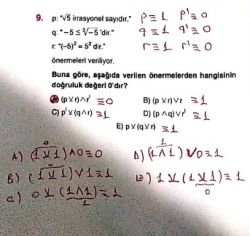 9. p: "√5 irrasyonel sayıdır." p≡1 p'≡0
q: "-5 ≤ ∛-5 'dir." q≡1 q'≡0
r: "(-5)² = 5² dir." r≡1 r'≡0
önermeleri veriliyor.
Buna göre, aşağıda verilen önermelerden hangisinin
doğruluk değeri 0'dır?
(p ⊻ r)∧r' ≡0 B) (p ⊻ r)∨r ≡1
C) p'⊻(q∧r) ≡1 D) (p∧q)∨r' ≡1
E) p⊻(q⊻r) ≡1
A) (1⊻1)∧0≡0 D) (1∧1)∨0≡1
B) (1⊻1)∨1≡1 E) 1⊻(1⊻1)≡1
0
C) 0⊻(1∧1)≡1
1